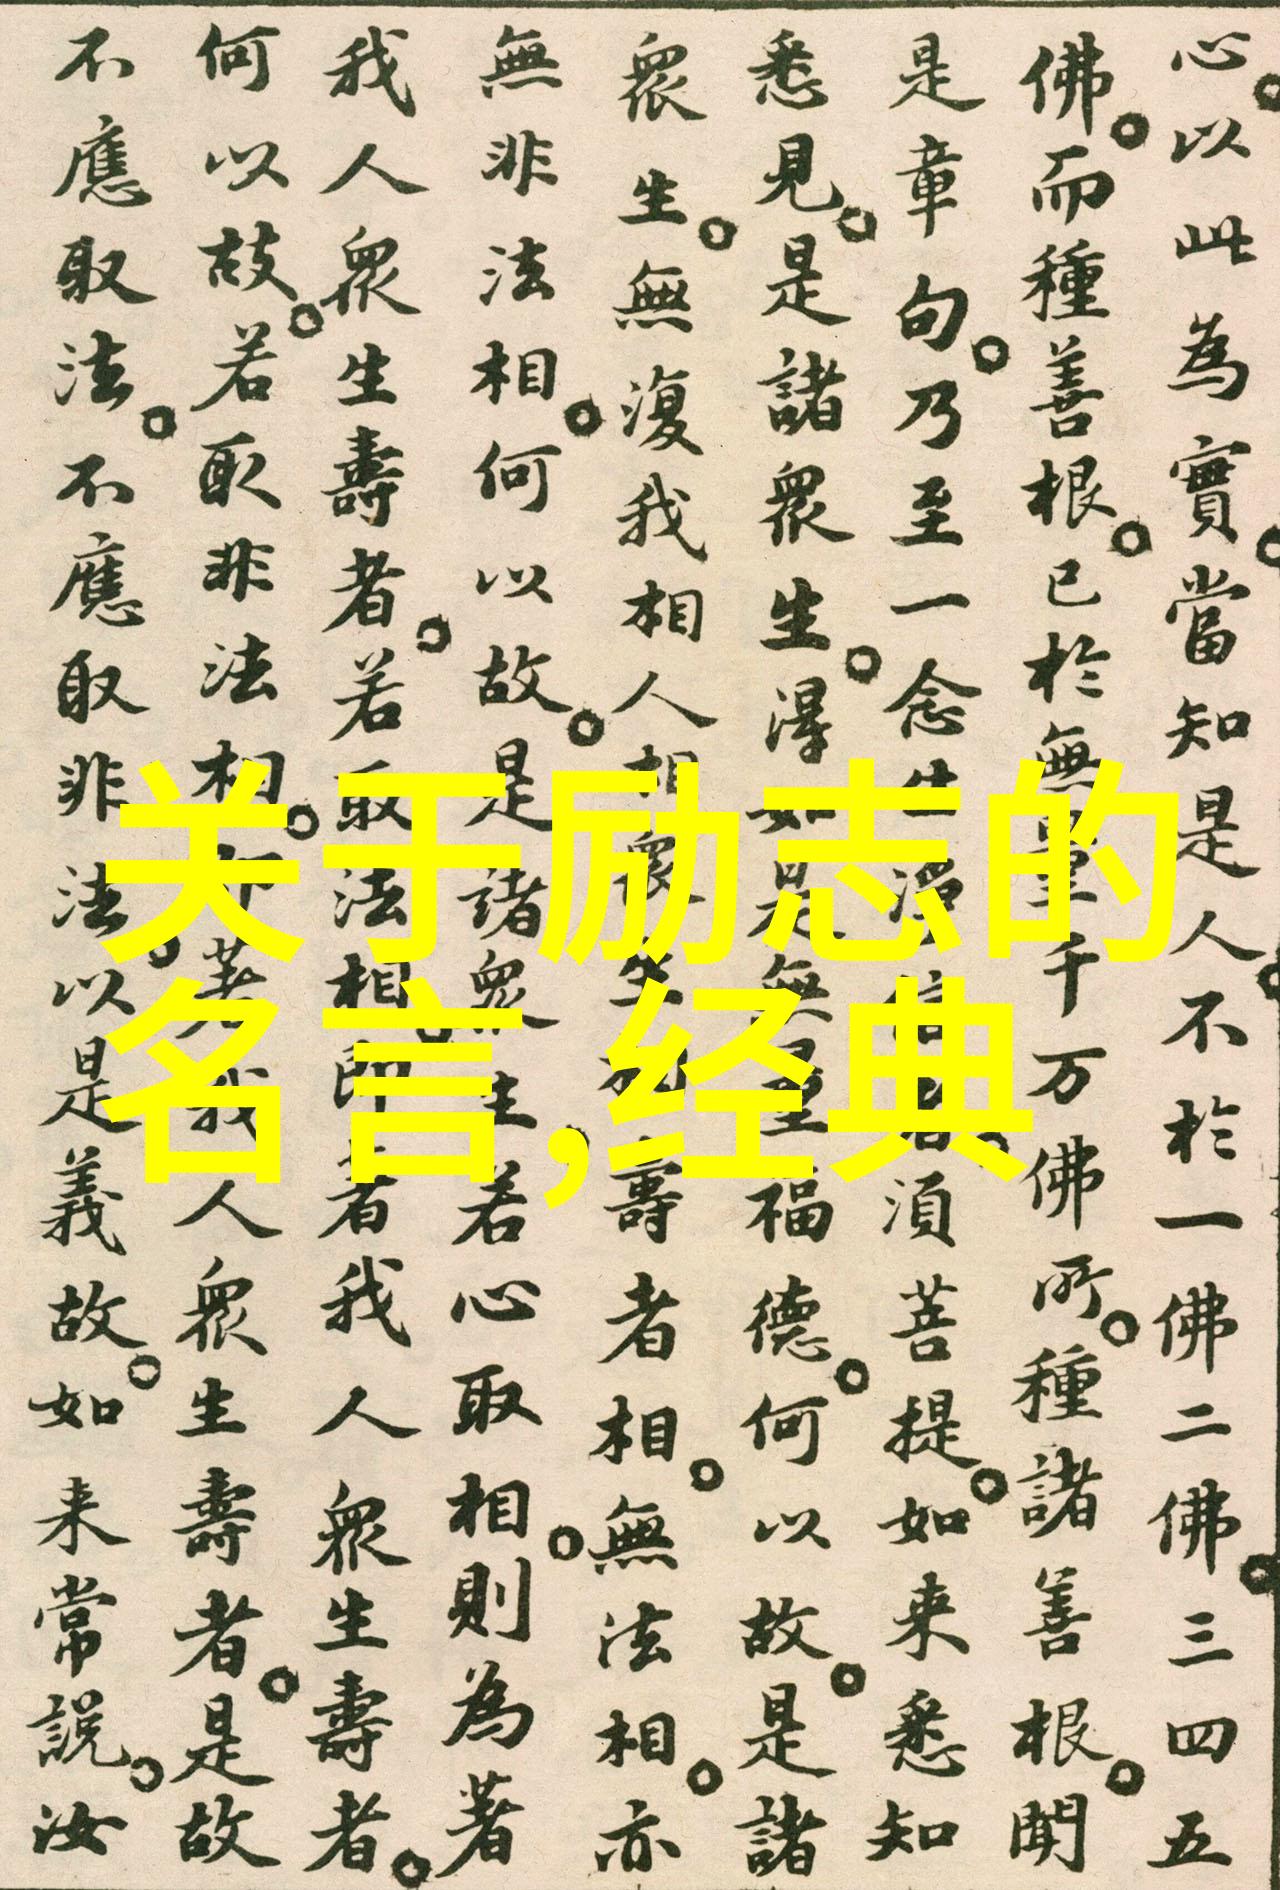 心。以此為實。當知是人。不於一佛二佛。三四五
佛。而種善根。已於無量千万佛所。種諸善根。聞
是章句。乃至一念生淨信者。須菩提。如来悉知
悉見。是諸衆生。得如是無量福德。何以故。是諸
衆生。無復我相人相衆生相。壽者相。無法相。亦
無非法相。何以故。是諸衆生若心取相。則為著
我人衆生壽者。若取法相。即著我人衆生壽者。
何以故。若取非法相。即著我人衆生壽者。是故
不應取法。不應取非法。以是義故。如来常說。汝
关于励志的
名言,经典